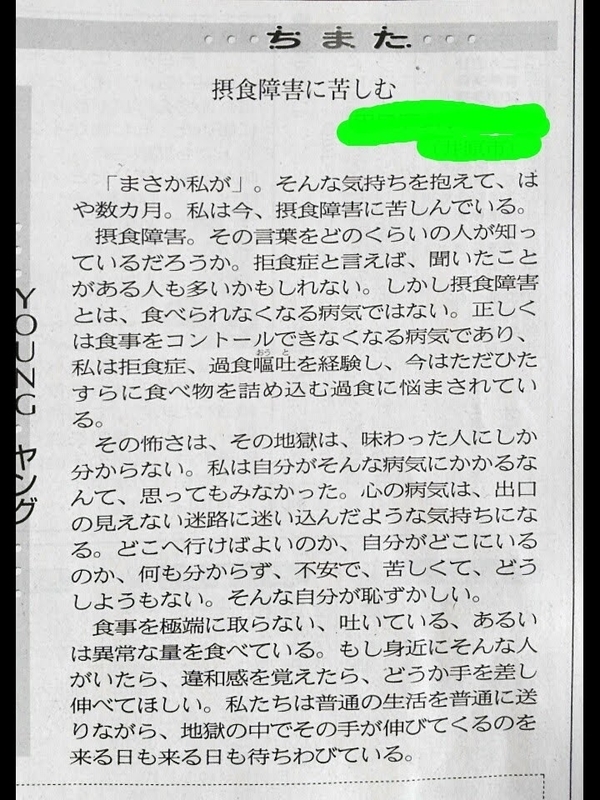 ちまた
摂食障害に苦しむ
「まさか私が」。そんな気持ちを抱えて、は
や数カ月。私は今、摂食障害に苦しんでいる。
摂食障害。その言葉をどのくらいの人が知っ
ているだろうか。拒食症と言えば、聞いたこと
がある人も多いかもしれない。しかし摂食障害
とは、食べられなくなる病気ではない。正しく
は食事をコントロールできなくなる病気であり、
おうと
私は拒食症、過食嘔吐を経験し、今はただひた
すらに食べ物を詰め込む過食に悩まされてい
る。
その怖さは、その地獄は、味わった人にしか
分からない。私は自分がそんな病気にかかるな
んて、思ってもみなかった。心の病気は、出口
の見えない迷路に迷い込んだような気持ちにな
る。どこへ行けばよいのか、自分がどこにいる
のか、何も分からず、不安で、苦しくて、どう
しようもない。そんな自分が恥ずかしい。
食事を極端に取らない、吐いている、あるい
は異常な量を食べている。もし身近にそんな人
がいたら、違和感を覚えたら、どうか手を差し
伸べてほしい。私たちは普通の生活を普通に送
りながら、地獄の中でその手が伸びてくるのを
来る日も来る日も待ちわびている。
YOUNG ヤング